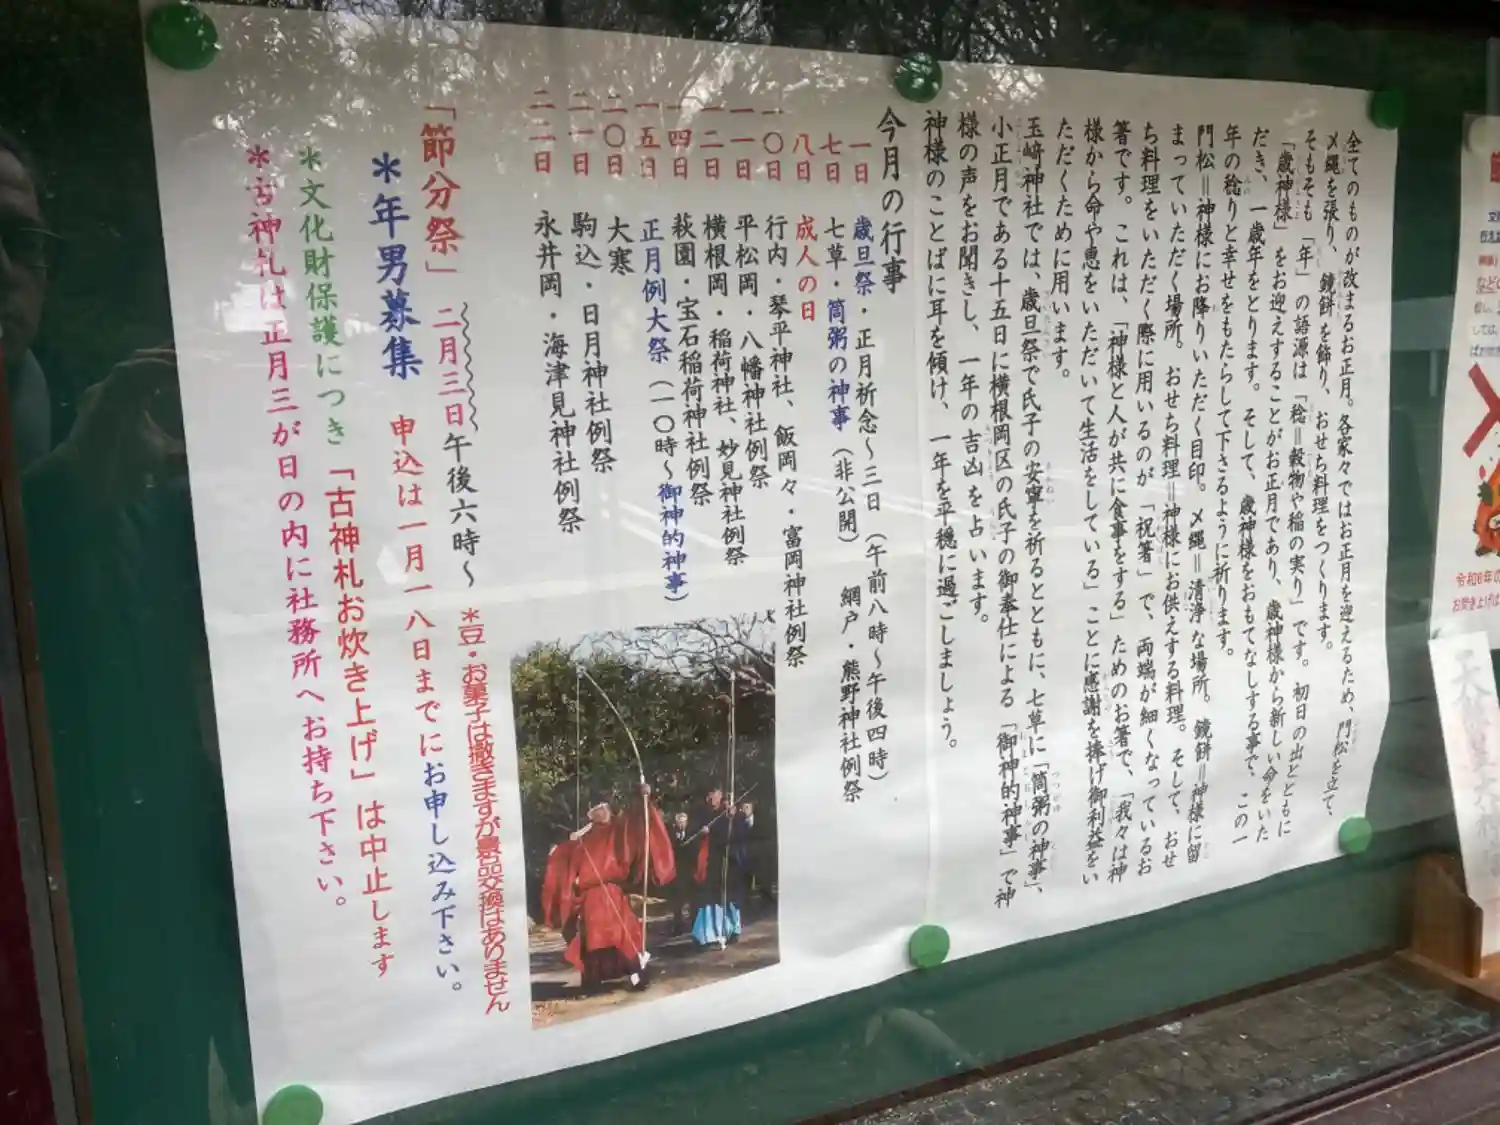 全てのものが改まるお正月。各家々ではお正月を迎えるため、門松を立て、
〆縄を張り、鏡餅を飾り、おせち料理をつくります。
そもそも「年」の語源は「稔＝穀物や稲の実り」です。初日の出とともに
「歳神様」をお迎えすることがお正月であり、歳神様から新しい命をいた
だき、一歳年をとります。そして、歳神様をおもてなしする事で、この一
年の稔りと幸せをもたらして下さるように祈ります。
門松＝神様にお降りいただく目印。〆縄＝清浄な場所。鏡餅＝神様に留
まっていただく場所。おせち料理＝神様にお供えする料理。そして、おせ
ち料理をいただく際に用いるのが「祝箸」で、両端が細くなっているお
箸です。これは、「神様と人が共に食事をする」ためのお箸で、「我々は神
様から命や恵をいただいて生活をしている」ことに感謝を捧げ御利益をい
ただくために用います。
玉﨑神社では、歳旦祭で氏子の安寧を祈るとともに、七草に「筒粥の神事」、
小正月である十五日に横根岡区の氏子の御奉仕による「御神的神事」で神
様の声をお聞きし、一年の吉凶を占います。
神様のことばに耳を傾け、一年を平穏に過ごしましょう。
今月の行事
一日 歳旦祭・正月祈念～三日（午前八時～午後四時）
七日 七草・筒粥の神事（非公開） 網戸・熊野神社例祭
八日 成人の日
一〇日 行内・琴平神社、飯岡々・富岡神社例祭
一一日 平松岡・八幡神社例祭
一二日 横根岡・稲荷神社、妙見神社例祭
一四日 萩園・宝石稲荷神社例祭
一五日 正月例大祭（一〇時～御神的神事）
二〇日 大寒
二一日 駒込・日月神社例祭
二二日 永井岡・海津見神社例祭
「節分祭」 二月三日午後六時～ ＊豆・お菓子は撒きますが景品交換はありません
＊年男募集 申込は一月一八日までにお申し込み下さい。
＊文化財保護につき「古神札お炊き上げ」は中止します
＊古神札は正月三が日の内に社務所へお持ち下さい。
令和6年の
お焚き上げは